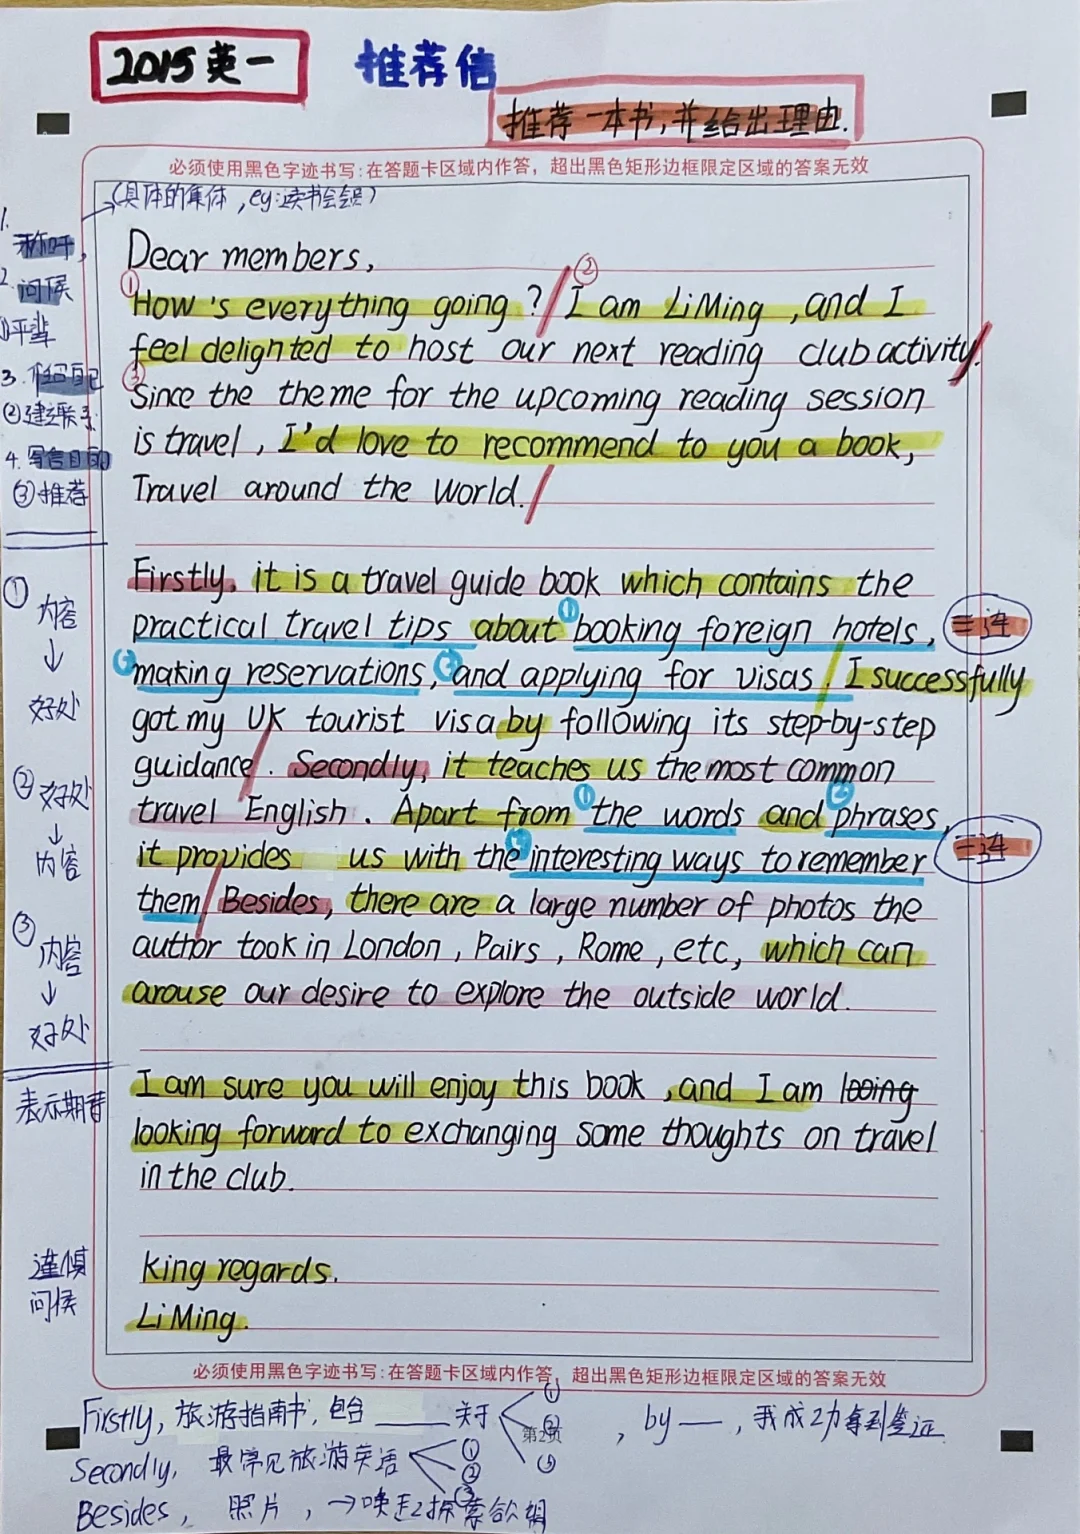 2015英一 推荐信
推荐一本书,并给出理由.
必须使用黑色字迹书写:在答题卡区域内作答，超出黑色矩形边框限定区域的答案无效
(具体的集体，eg:读书会会员)
1.
称呼,
2.问候
①平辈
3.介绍自己
②建立联系
4.写信目的
③推荐
Dear members,
① ②
How's everything going? / I am LiMing ,and I
feel delighted to host our next reading club activity. /
③
Since the theme for the upcoming reading session
is travel , I'd love to recommend to you a book,
Travel around the world. /
① 内容
↓
好处
② 好处
↓
内容
③ 内容
↓
好处
Firstly, it is a travel guide book which contains the
practical travel tips about ①booking foreign hotels, 三连
②making reservations, ③and applying for visas / I successfully
got my UK tourist visa by following its step-by-step
guidance / . Secondly, it teaches us the most common
travel English . Apart from ①the words and ②phrases,
it provides us with the interesting ways to remember 三连
them / Besides, there are a large number of photos the
author took in London , Pairs , Rome , etc, which can
arouse our desire to explore the outside world.
表示期待
I am sure you will enjoy this book ,and I am looing
looking forward to exchanging some thoughts on travel
in the club.
谨慎
问候
King regards.
LiMing.
必须使用黑色字迹书写:在答题卡区域内作答，超出黑色矩形边框限定区域的答案无效
Firstly, 旅游指南书, 包含 ____ 关于 ① ② ③ , by __ , 我成功拿到签证
第2页
Secondly, 最常见旅游英语 ① ② ③
Besides, 照片 , → 唤起探索欲望